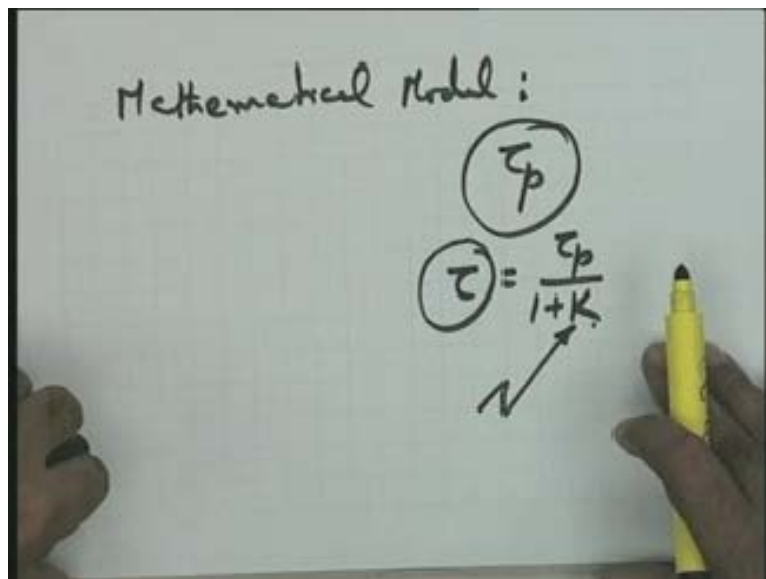 Mathematical Model :
τp
τ = τp / 1+K